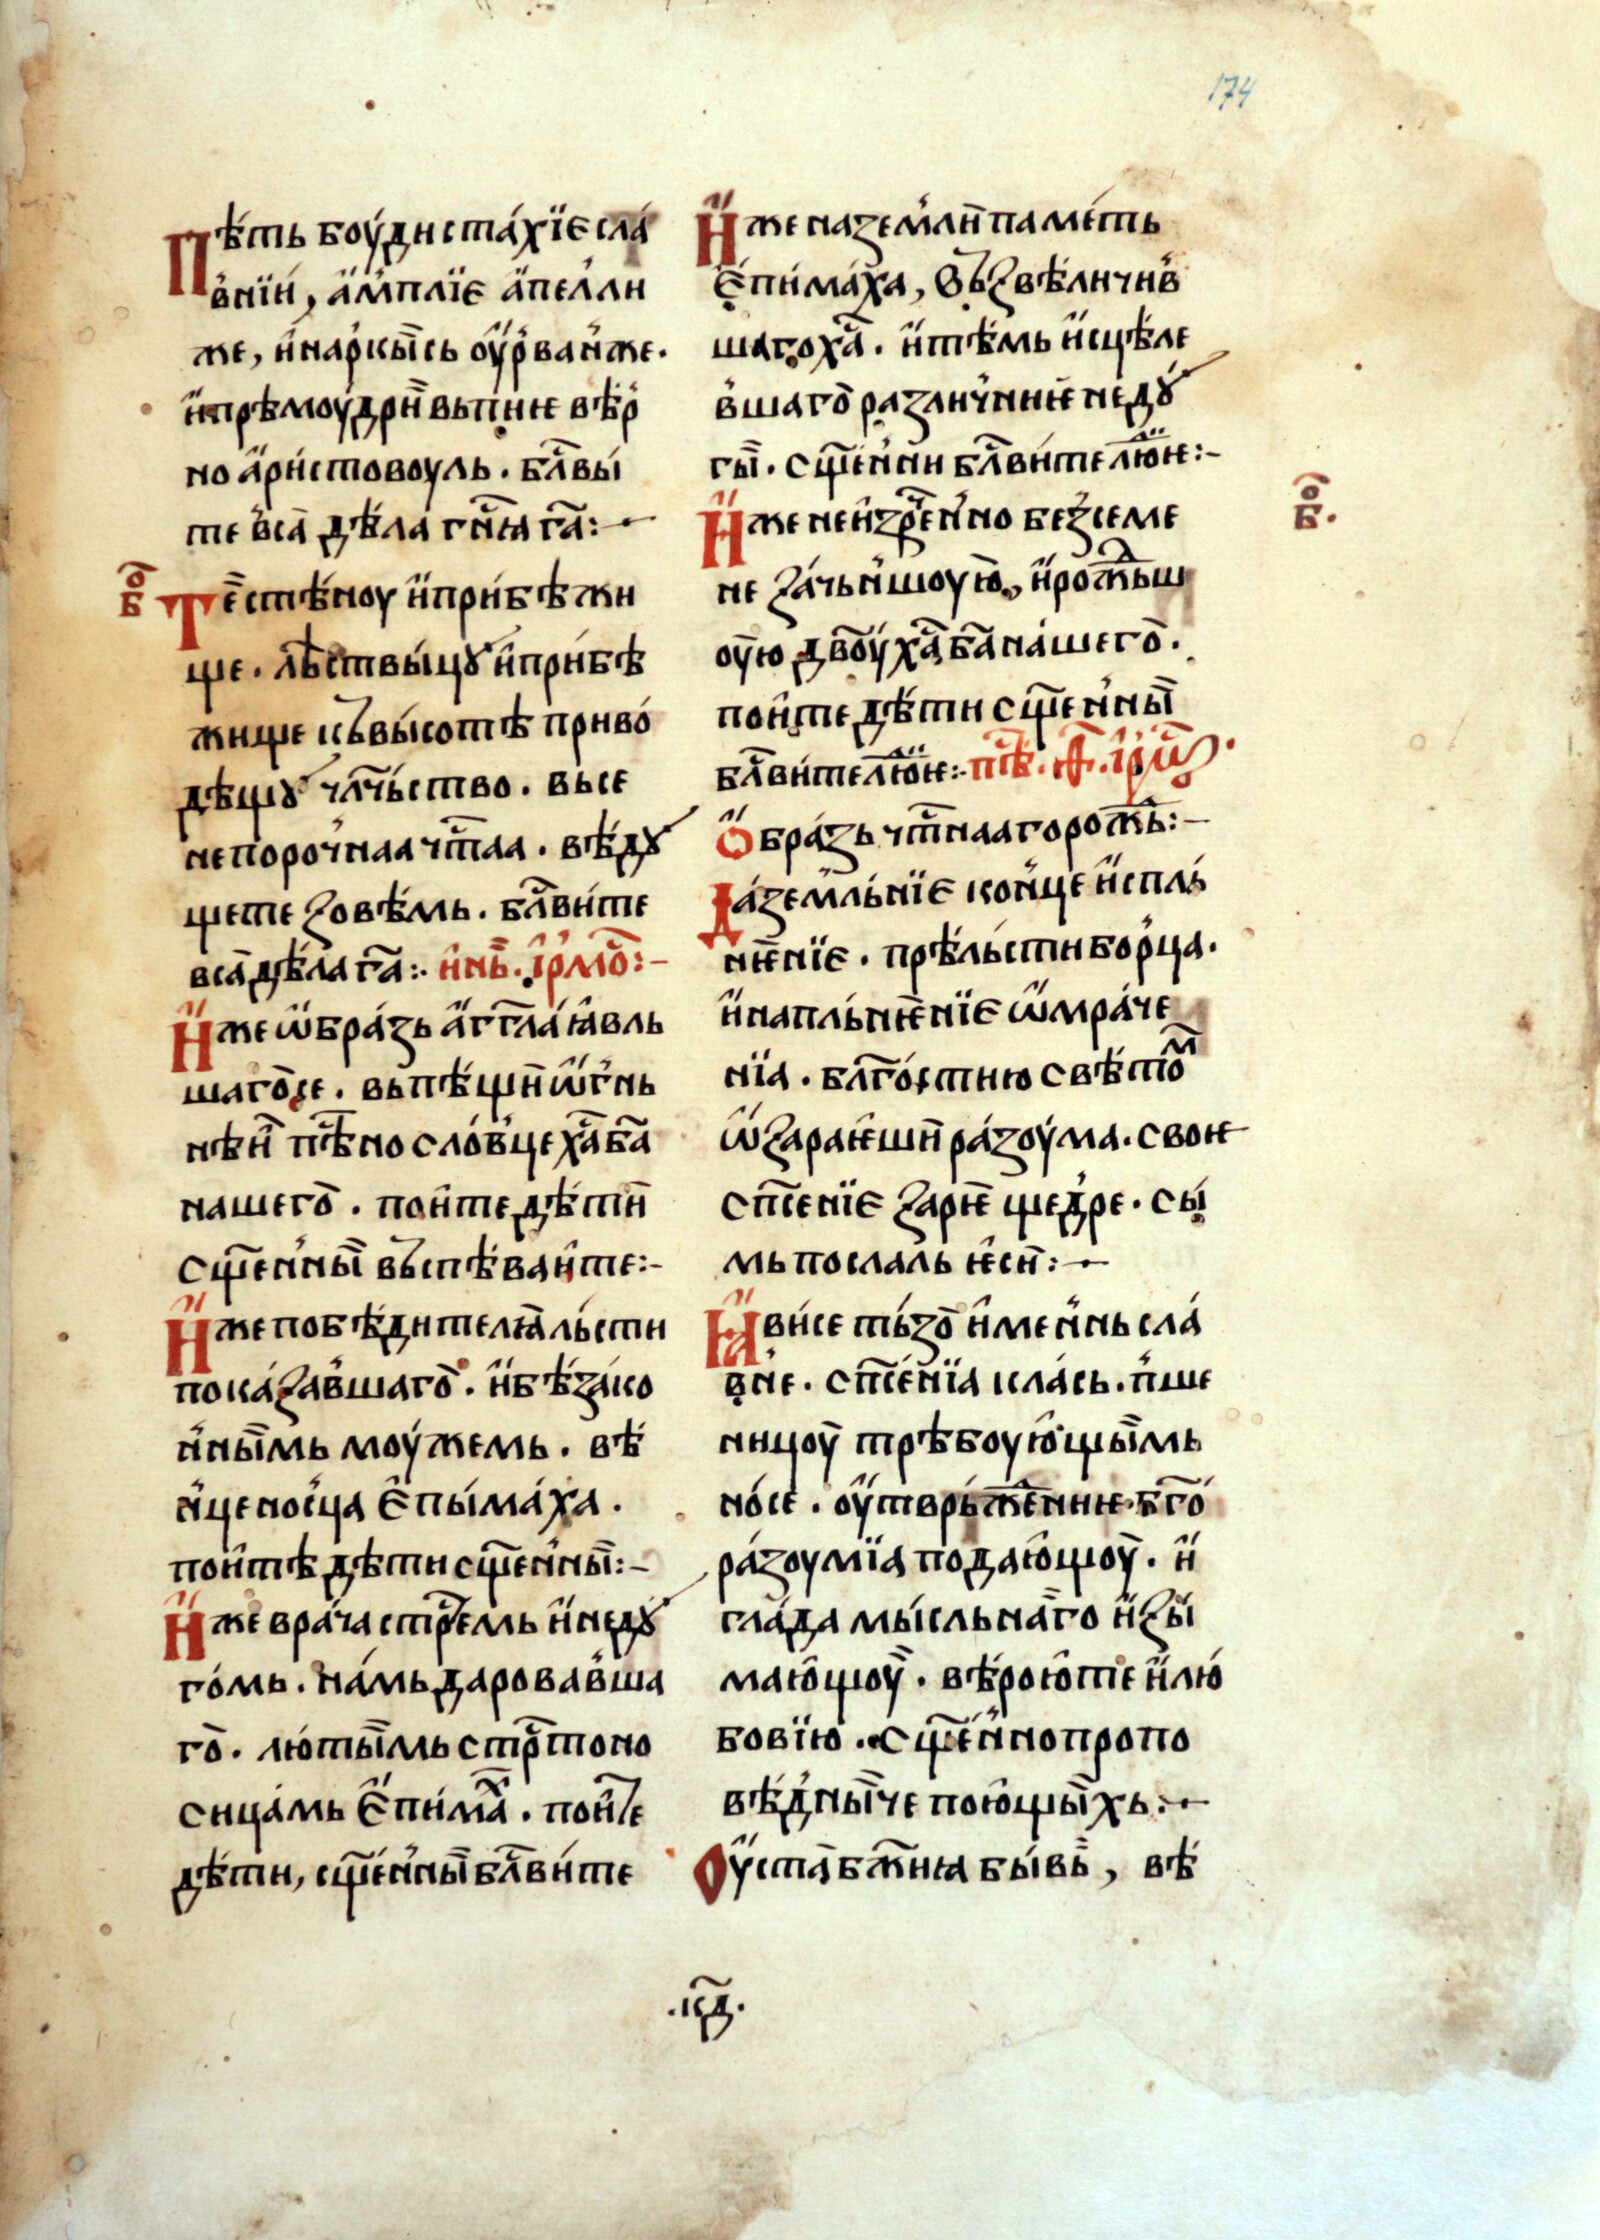 174
Пѣ́ть боу́ди ста́хїе сла́
в҆нїи́, а҆́м҆плїе а҆пел҆ли
же, и҆нар҆кы̀сь оу҆р҆ван҆же.
и҆прѣмоу́дрїи вьпи́не вѣ́р҆
но а҆ри́стовоуль. бл҃ви́
те в҆са̀ дѣ́ла гн҃ꙗ га҃:
б҃о
Те̏ стѣ́ноу и҆приꙇ́бѣжи
ще. лѣ́ствы́цꙋ и҆приꙇ́бѣ
жище къвы́сотѣ приво́
дѣщꙋ чл҃чь́ство. вьсе
непороч҆наа чт҃аа. вѣ́дꙋ
щете ꙁовѣ́мь. бл҃ви́те
вса̀ дѣ́ла га҃:. и҆нь̀. і҆р҆мо̑:–
И҆же ѡ҆бра́зь а҆гг҃ла́ ꙗ҆́вль
шаго̀се. вьпѣ́щи̏ ѡ҆г҆нь
нѣи̏ пѣ҃носло́в҆це ха҃ ба҃
нашего̀. пои҆те дѣ́ти̏
сщ҃ен҆ны̏ въспѣ́ваи҆те:–
И҆же побѣ́дителꙗ̀ льсти
пока́ꙁав҆шаго̀. и҆бѣ́ꙁа́ко
н҆ны̏мь моу́жемь. вѣ́
н҆це нос҆ца е҆пы́ма́ха.
пои҆тѣ дѣ́ти сщ҃ен҆ны̏:–
И҆же вра́ча стр҃емь и҆недꙋ
го́мь. на́мь даровав҆ша
го̀. лю́ты̏мь стр҃тоно
сица́мь е҆пи́ма̏х. пои҆те
дѣ́ти, сщ҃е́н҆ны̏ бл҃ви́те
И҆же наꙁем҆ли̏ паме́ть
е҆пи́ма́ха, въꙁвѣ́личив҆
шаго ха҃. и҆тѣ́мь и҆сцѣ́ле
в҆шаго̀ раꙁлич҆ниѥ недꙋ́
гы̏. сщ҃ен҆ни бл҃ви́телюѥ:–
б҃о.
И҆же неи҆ꙁр҃ен҆но беꙁ҆семе
не ꙁа́чьн҆шоую̀, и҆рож҃дьш
оу́ю дв҃оу ха҃ ба҃ на́шего̀.
пои҆те дѣ́ти сщ҃ен҆ны̏
бл҃ви́телюѥ:. пѣ҃. ѳ҃. і҆р҆мѡ҃.
О҆бра́ꙁь чт҃наа горож҃ь:–
Да́ꙁем҆льнїе кон҆це и҆спль́
нѥ́нїе. прѣ́льсти бор҆ца.
и҆напль́нѥ́нїе ѡ҆мра́че
нїа. бл҃го́стию свѣ́том
ѡ҆ꙁараѥши̏ ра́ꙁоу́ма. своѥ
сп҃сенїе ꙁарѥ̀ щед҆ре. сы́
мь послаль ѥ҆си̏:
Ꙗ҆ви́се ть́ꙁо̀ и҆мен҆нь сла́
в҆не. сп҃се́нїа кла́сь. п҆ше
ницоу̀ трѣ́боую҆щы̏мь
но́се. оу҆твръ́ж҃ениѥ. б҃го
ра́ꙁоумїа подаю҆щоу̏. и҆
гла́да мы́сльна̏го и҆ꙁы́
маю҆щоу̏. вѣ́рою҆те и҆лю́
бовїю. сщ҃ен҆но пропо
вѣ́д҆ны̏че пою҆щы̏хь:
Оу҆ста̀ бж҃иꙗ бы́вь̏, вѣ́
.к҃д.